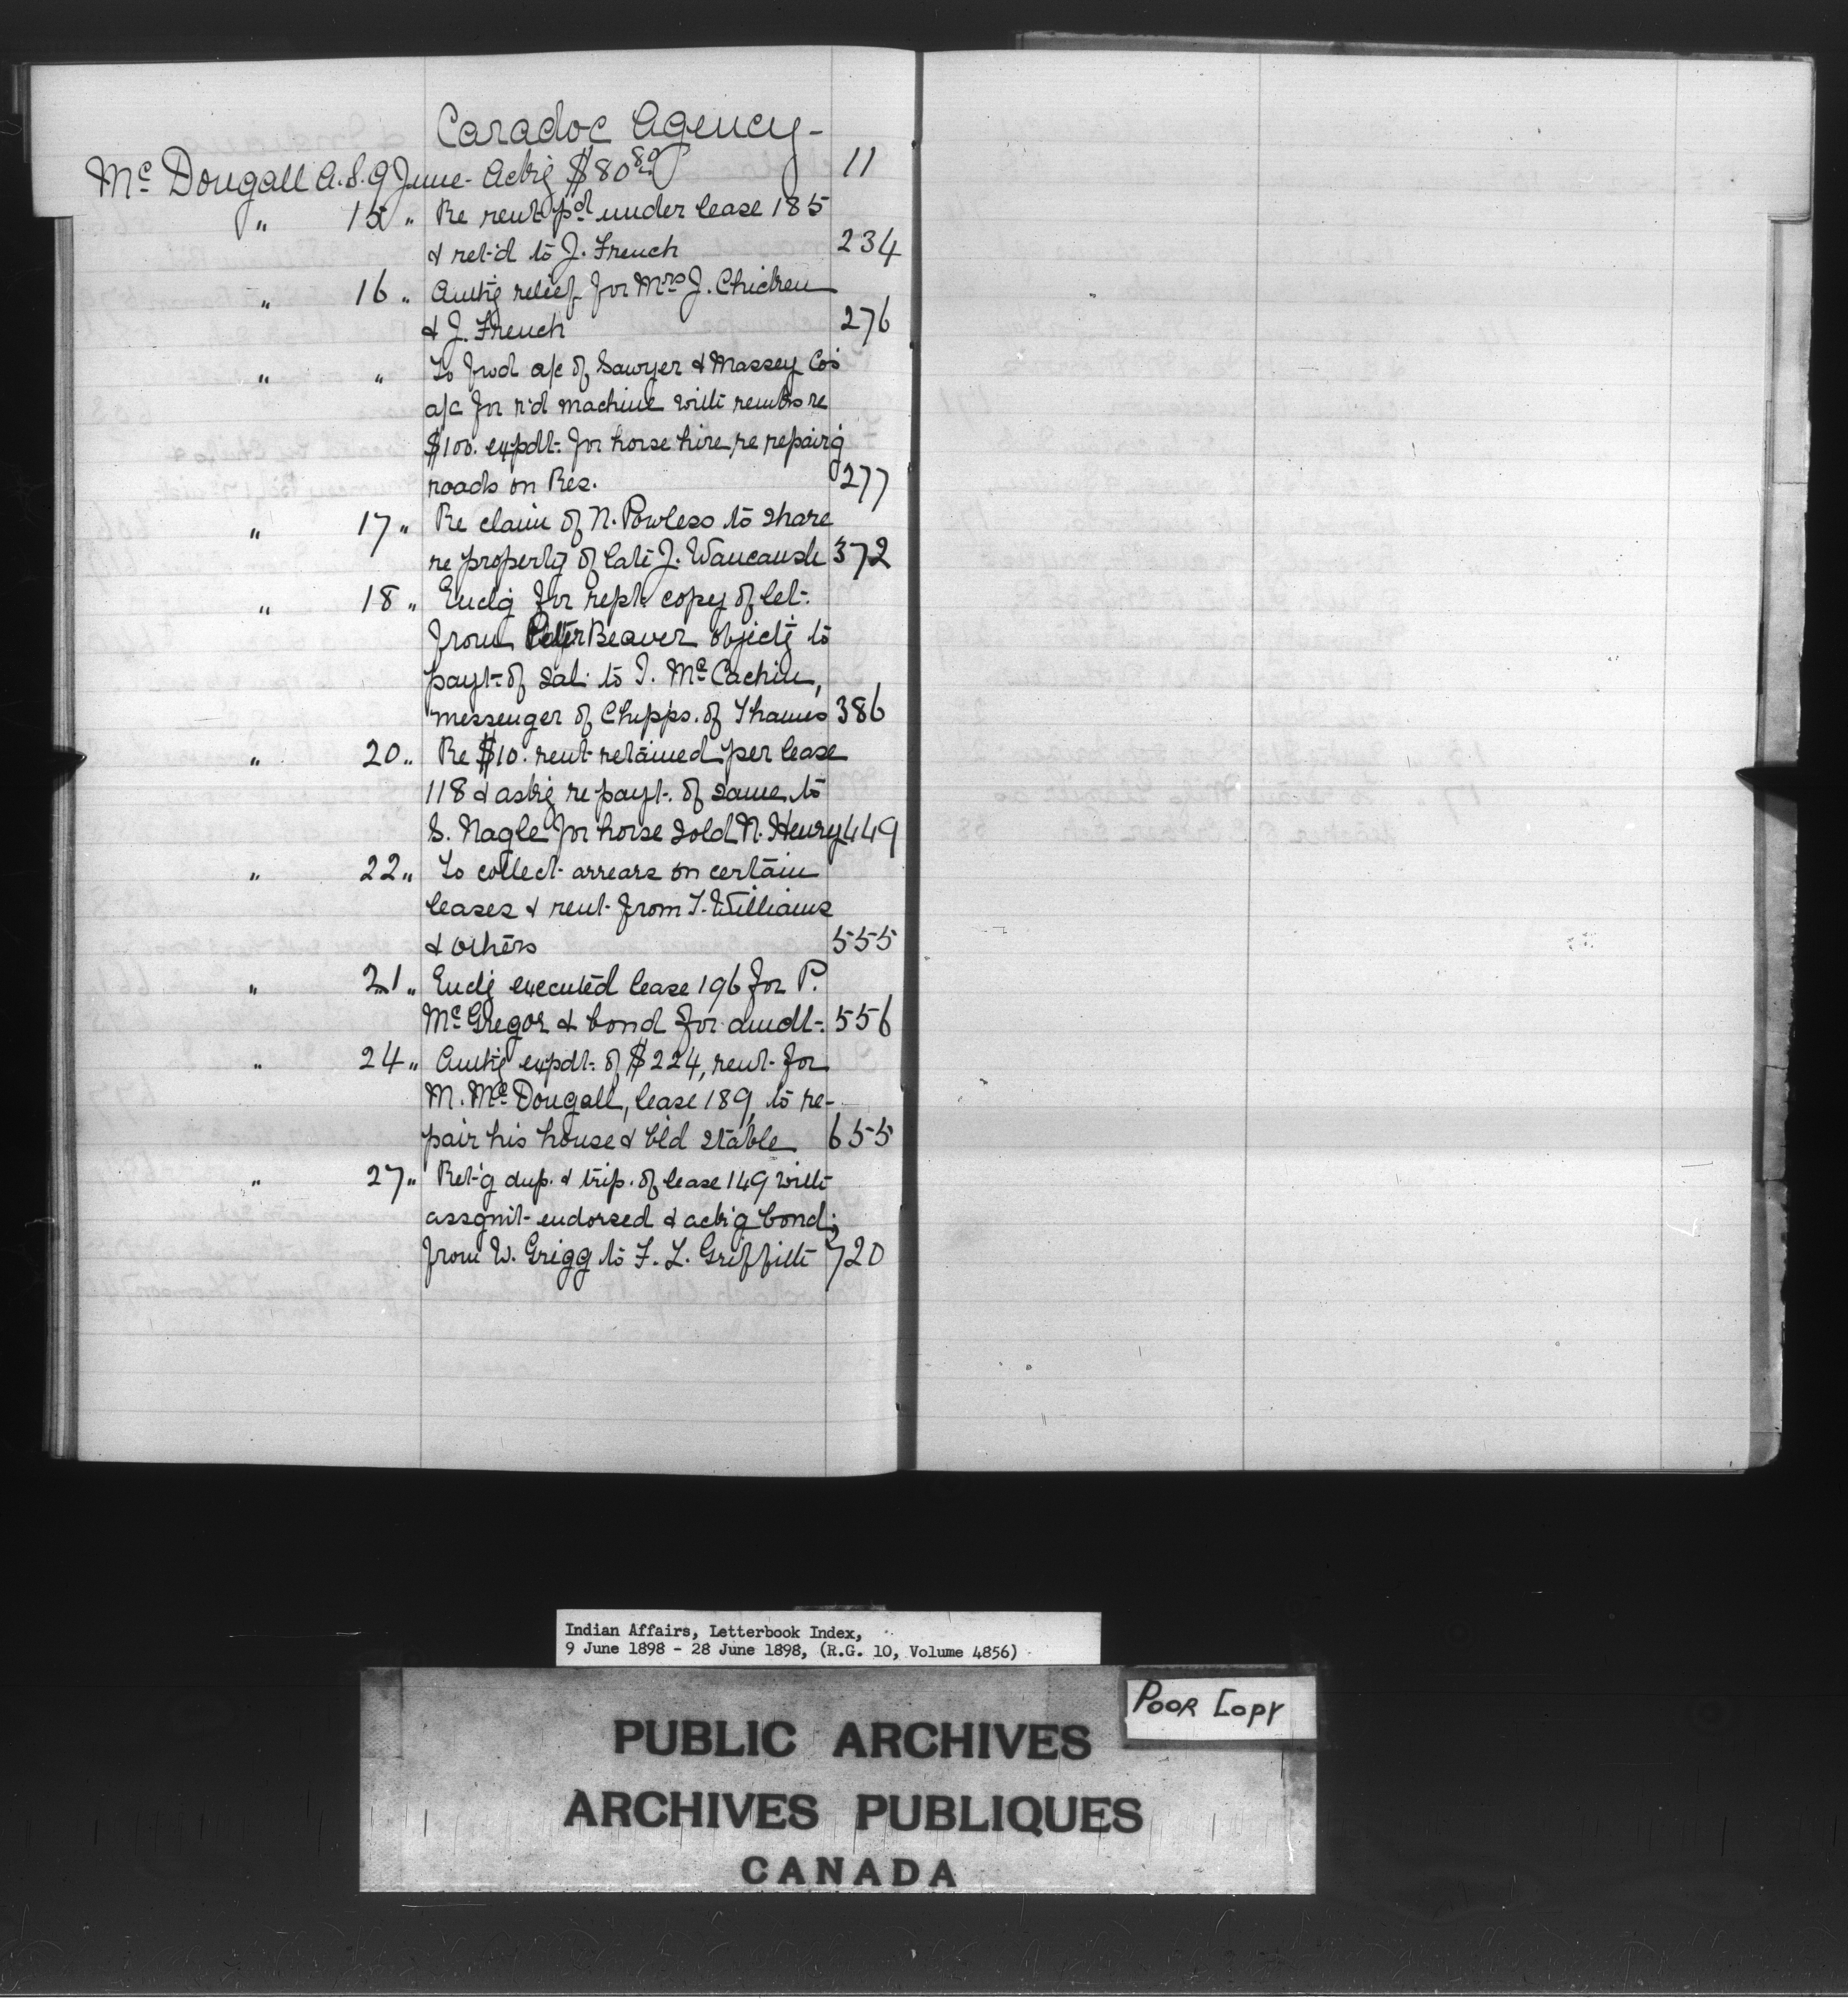 Caradoc Agency -
Mc Dougall A. S. 9 June - Ackg $80 80 11
" 15 " Re rent pd under lease 185
& ret'd to J. French 234
" 16 " Authg relief for Mrs J. Chicken
& J. French 276
" " To fwd a/c of Sawyer & Massey Co's
a/c for r'd machine with rembs re
$100. expdt. for horse hire re repairg
roads on Res. 277
" 17 " Re claim of N. Powless to share
re property of late J. Waucaush 372
" 18 " Encl'g for rept. copy of let.
from Peter Beaver objectg to
payt. of sal. to J. McCachin,
messenger of Chipps. of Thames 386
" 20 " Re $10. rent retained per lease
118 & askg re payt. of same to
S. Nagle for horse sold N. Henry 449
" 22 " To collect arrears on certain
leases & rent from T. Williams
& others 555
" 21 " Enclg executed lease 196 for P.
McGregor & bond for amdt. 556
" 24 " Authg expdt. of $224, rent for
M. McDougall, lease 189, to re-
pair his house & bld stable 655
" 27 " Ret'g dup. & trip. of lease 149 with
assgmt endorsed & ack'g bond;
from W. Grigg to F. L. Griffith 720
Indian Affairs, Letterbook Index,
9 June 1898 - 28 June 1898, (R.G. 10, Volume 4856)
POOR COPY
PUBLIC ARCHIVES
ARCHIVES PUBLIQUES
CANADA